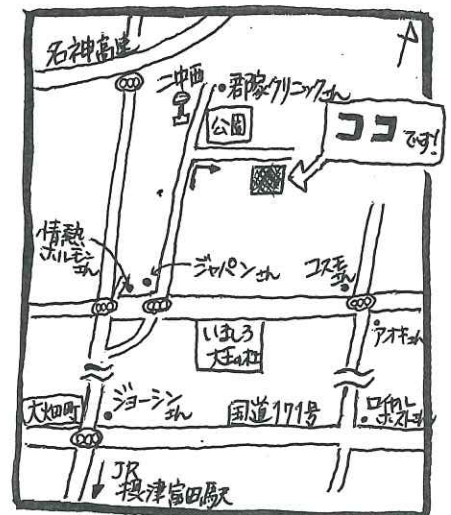 名神高速
二中西
郡家クリニックさん
公園
ココです!
情熱
ホルモン
さん
ジャパンさん
コスモ
さん
いましろ
大王の杜
アオキさん
大畑町
ジョーシン
さん
国道171号
ロイヤル
ホストさん
JR
摂津富田駅